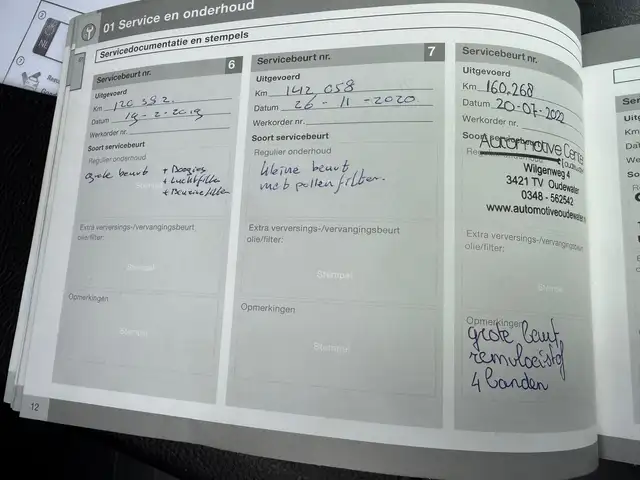 01 Service en onderhoud
Servicedocumentatie en stempels
Servicebeurt nr. 6
Uitgevoerd
Km 120 392.
Datum 19-2-2019
Werkorder nr.
Soort servicebeurt
Regulier onderhoud
grote beurt + Bougies
+ Luchtfilter
+ Benzinefilter
Extra verversings-/vervangingsbeurt
olie/filter:
Stempel
Opmerkingen
Stempel
12
Servicebeurt nr. 7
Uitgevoerd
Km 142,058
Datum 26-11-2020.
Werkorder nr.
Soort servicebeurt
Regulier onderhoud
kleine beurt
met pollenfilter.
Extra verversings-/vervangingsbeurt
olie/filter:
Stempel
Opmerkingen
Stempel
Servicebeurt nr.
Uitgevoerd
Km 160.268
Datum 20-07-2022
Werkorder nr.
Soort servicebeurt
Automotive Center
oudewater
Wilgenweg 4
3421 TV Oudewater
0348 - 562542
www.automotiveoudewater
Extra verversings-/vervangingsbeurt
olie/filter:
Opmerkingen
grote beurt
remvloeistof
4 banden